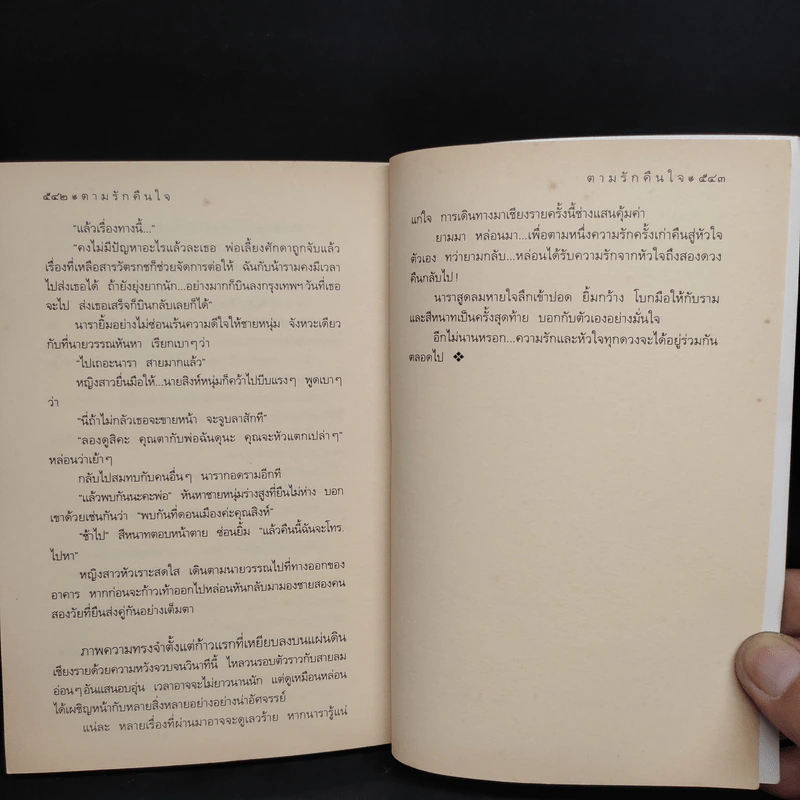 ๕๔๒ ตามรักคืนใจ
"แล้วเรื่องทางนี้..."
"คงไม่มีปัญหาอะไรแล้วละเธอ พ่อเลี้ยงศักดาถูกจับแล้ว
เรื่องที่เหลือสารวัตรกชก็ช่วยจัดการต่อให้ ฉันกับน้ารามคงมีเวลา
ไปส่งเธอได้ ถ้ายังยุ่งยากนัก...อย่างมากก็บินลงกรุงเทพฯวันที่เธอ
จะไป ส่งเธอเสร็จก็บินกลับเลยก็ได้"
นารายิ้มอย่างไม่ซ่อนเร้นความดีใจให้ชายหนุ่ม จังหวะเดียว
กับที่นายวรรณหันหา เรียกเบาๆว่า
"ไปเถอะนารา สายมากแล้ว"
หญิงสาวยื่นมือให้...นายสิงห์หนุ่มก็คว้าไปบีบแรงๆ พูดเบาๆ
ว่า
"นี่ถ้าไม่กลัวเธอจะขายหน้า จะจูบลาสักที"
"ลองดูสิคะ คุณตากับพ่อฉันดุนะ คุณจะหัวแตกเปล่าๆ"
หล่อนว่าเย้าๆ
กลับไปสมทบกับคนอื่นๆ นารากอดรามอีกที
"แล้วพบกันนะคะพ่อ" หันหาชายหนุ่มร่างสูงที่ยืนไม่ห่าง บอก
เขาด้วยเช่นกันว่า "พบกันที่ดอนเมืองค่ะคุณสิงห์"
"ช้าไป" สีหนาทตอบหน้าตาย ซ่อนยิ้ม "แล้วคืนนี้ฉันจะโทร.
ไปหา"
หญิงสาวหัวเราะสดใส เดินตามนายวรรณไปที่ทางออกของ
อาคาร หากก่อนจะก้าวเท้าออกไปหล่อนหันกลับมามองชายสองคน
สองวัยที่ยืนส่งคู่กันอย่างเต็มตา
ภาพความทรงจำตั้งแต่ก้าวแรกที่เหยียบลงบนแผ่นดิน
เชียงรายด้วยความหวังจวบจนวินาทีนี้ ไหลวนรอบตัวราวกับสายลม
อ่อนๆอันแสนอบอุ่น เวลาอาจจะไม่ยาวนานนัก แต่ดูเหมือนหล่อน
ได้เผชิญหน้ากับหลายสิ่งหลายอย่างอย่างน่าอัศจรรย์
แน่ละ หลายเรื่องที่ผ่านมาอาจจะดูเลวร้าย หากนารารู้แน่
ตามรักคืนใจ ๕๔๓
แก่ใจ การเดินทางมาเชียงรายครั้งนี้ช่างแสนคุ้มค่า
ยามมา หล่อนมา...เพื่อตามหนึ่งความรักครั้งเก่าคืนสู่หัวใจ
ตัวเอง ทว่ายามกลับ...หล่อนได้รับความรักจากหัวใจถึงสองดวง
คืนกลับไป!
นาราสูดลมหายใจลึกเข้าปอด ยิ้มกว้าง โบกมือให้กับราม
และสีหนาทเป็นครั้งสุดท้าย บอกกับตัวเองอย่างมั่นใจ
อีกไม่นานหรอก...ความรักและหัวใจทุกดวงจะได้อยู่ร่วมกัน
ตลอดไป ❖